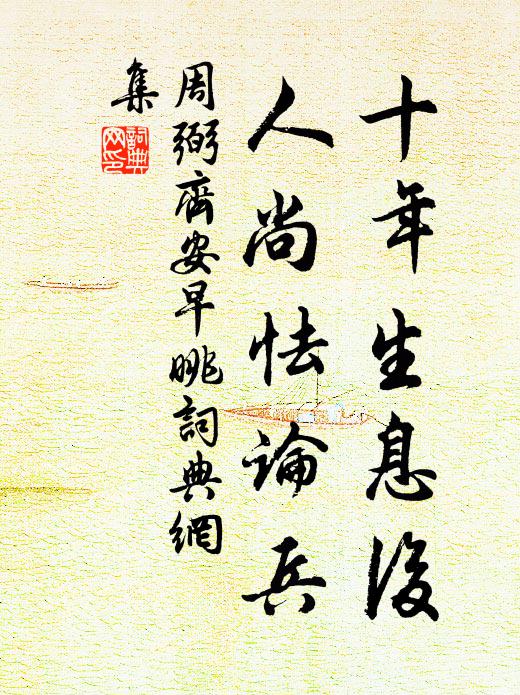 十年生息後
人尚怯論兵
周弼齊安早眺詞典網
集
詞典網印